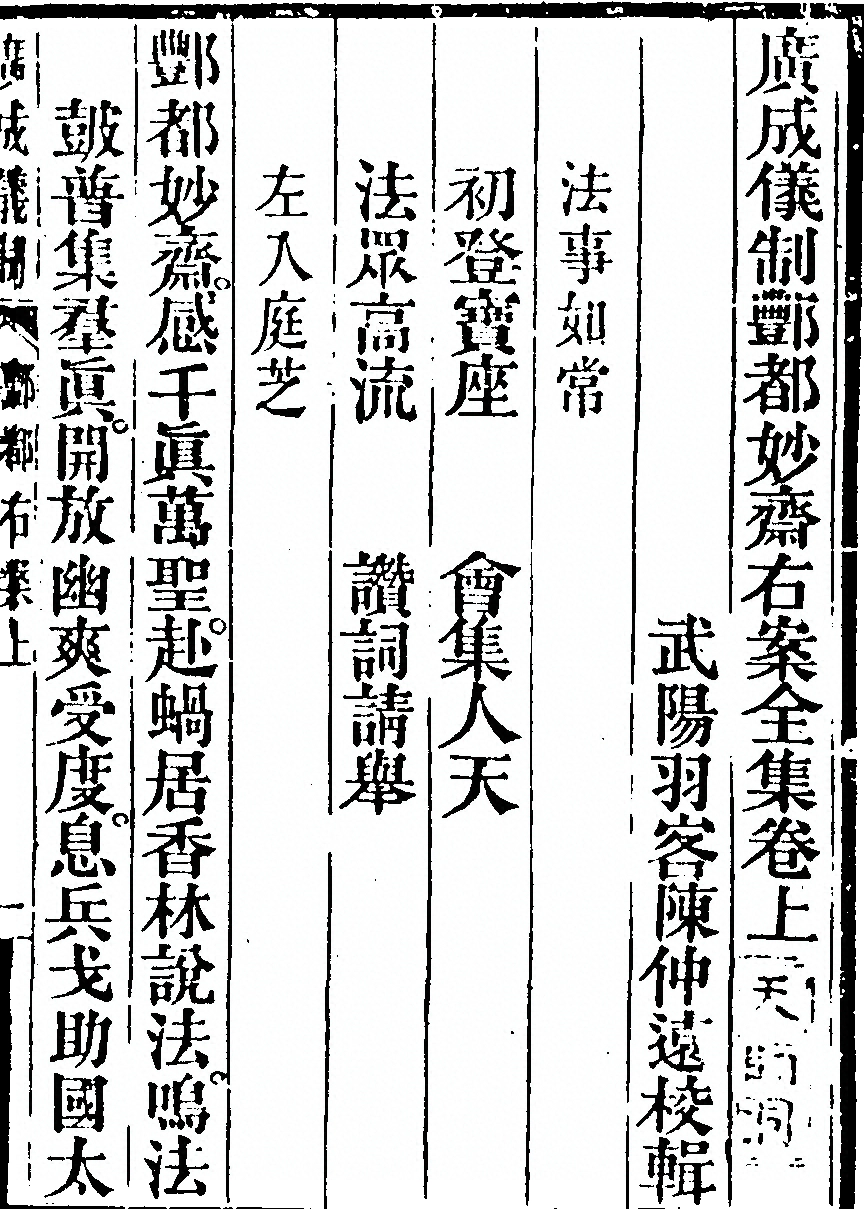 廣成儀制酆都妙齋右案全集卷上
武陽羽客陳仲遠校輯
法事如常
初登寶座　會集人天
法眾高流　讚詞請舉
左入庭芝
酆都妙齋。感千眞萬聖。赴蝸居香林說法。鳴法
皷普集羣眞。開放幽爽受度。息兵戈助國太
廣成儀制 酆都右案上 一